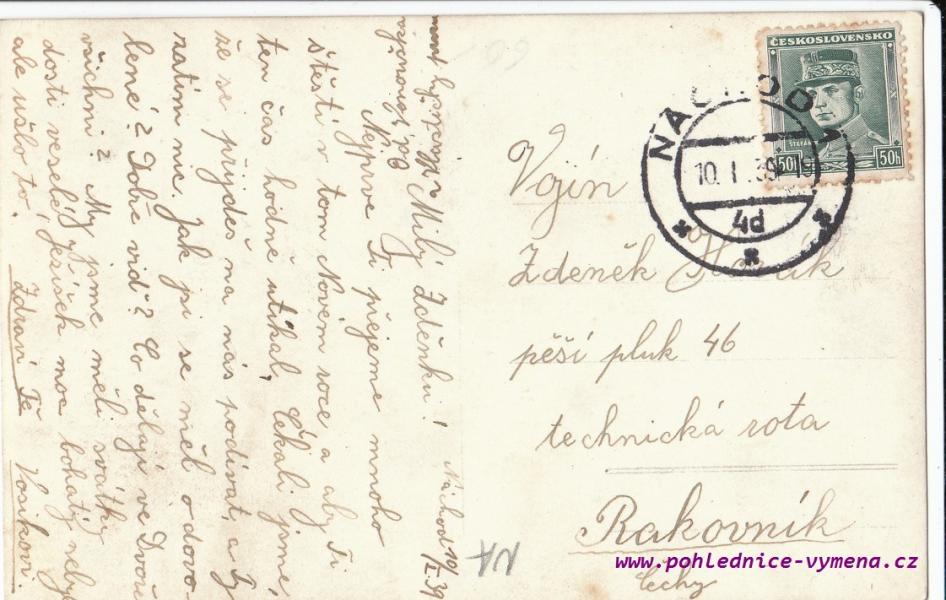 Náchod 10/I. 39
Milý Zdeňku!
Nejprve Ti přejeme mnoho
štěstí v tom Novém roce a aby Ti
ten čas hodně utíkal, čekali jsme,
že se přijdeš na nás podívat, a Ty
zatím ne. Jak jsi se měl o dovo-
lené? Dobře viď? Co dělají ve Dvoře
všichni? My jsme měli svátky
dosti veselé, Ježíšek moc bohatý nebyl
ale ušlo to. Zdraví Tě Vosikovi.
ČESKOSLOVENSKO
ŠTEFÁNIK
50h 50h
NÁCHOD 1
10. I. 39 - 19
4d
Vojín
Zdeněk
pěší pluk 46
technická rota
Rakovník
Čechy
NA
60
www.pohlednice-vymena.cz